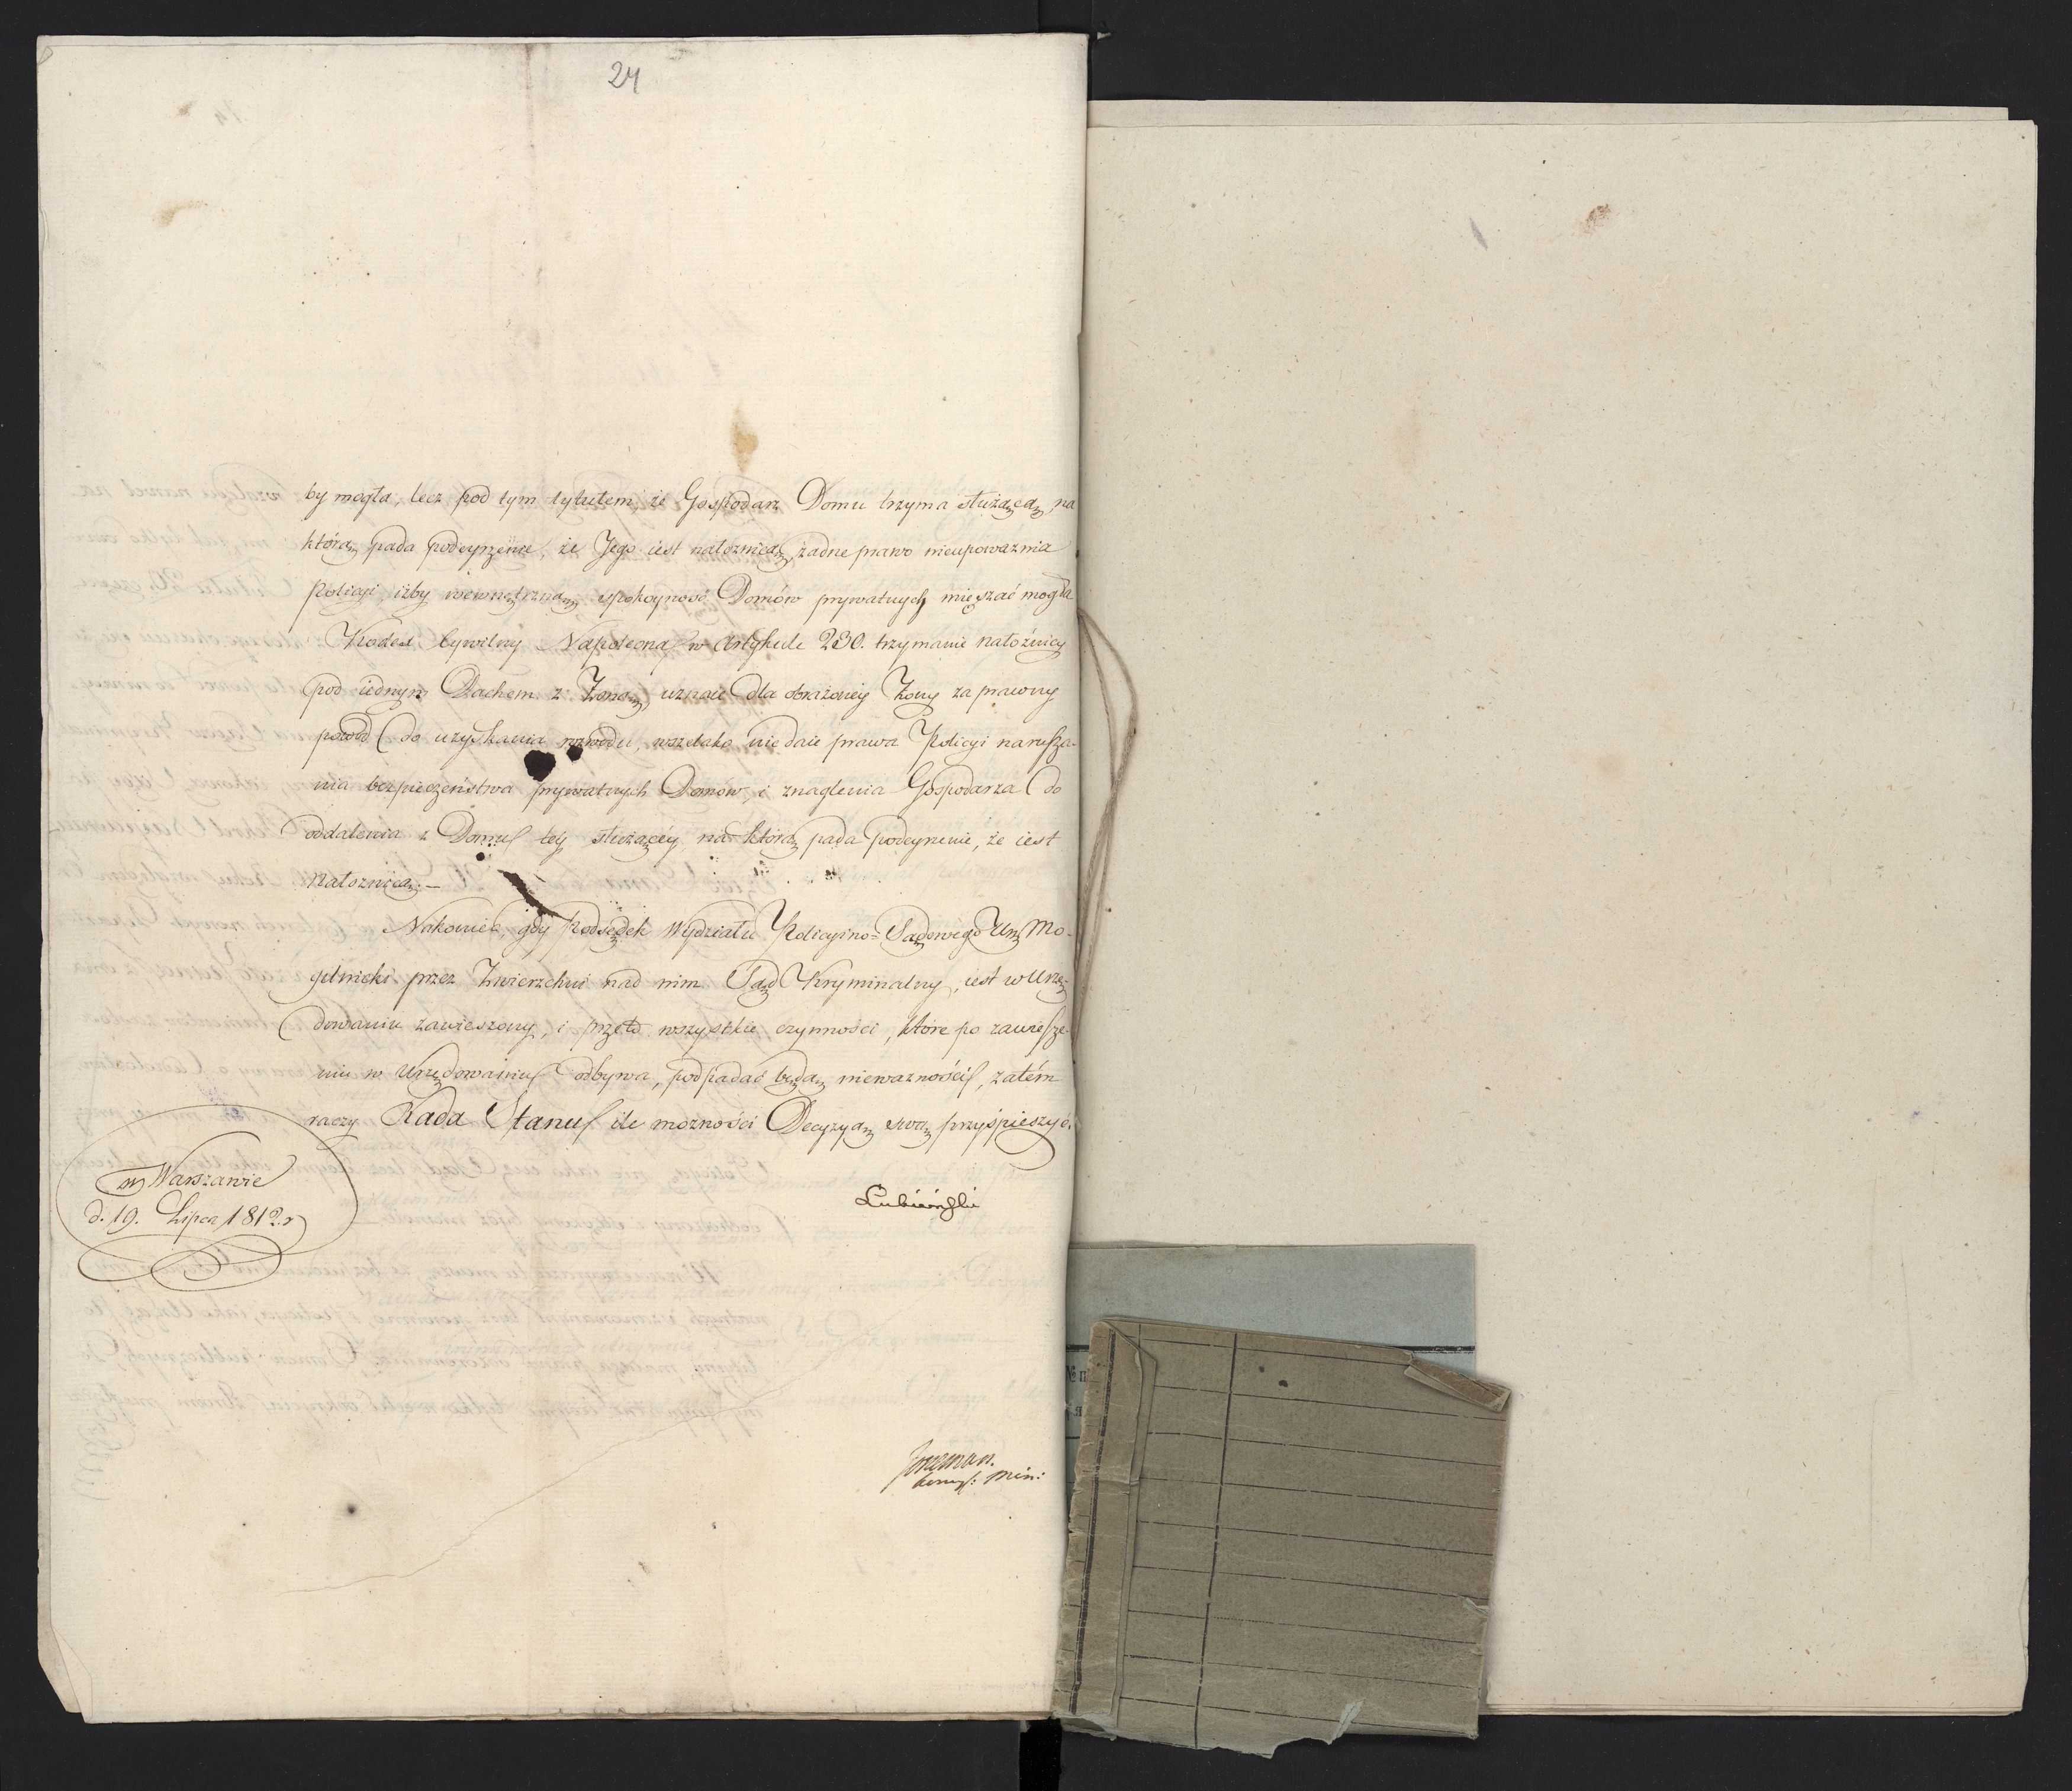 24
by mogła, lecz pod tym tytułem, że Gospodarz Domu trzyma służącą, na
którą pada podeyrzenie, że Jego iest nałożnicą, żadne prawo nieupoważnia
Policyi, iżby wewnętrzną spokoyność Domów prywatnych mięszać mogła
Kodex Cywilny Napoleona w Artykule 230. trzymanie nałożnicy
pod iednym Dachem z Żoną, uznaie dla obrażoney Żony za prawny
powód do uzyskania rozwodu, wszelako nie daie prawa Policyi narusza-
nia bezpieczeństwa prywatnych Domów, i znaglenia Gospodarza do
oddalenia z Domu tey służącéy, na którą pada podeyrzenie, że iest
nałożnicą. —
Nakoniec, gdy Podsędek Wydziału Policyino=Sądowego Ur. Mo-
gilnicki przez Zwierzchni nad nim Sąd Kryminalny, iest w Urzę-
dowaniu zawieszony, i przeto wszystkie czynności, które po zawiesze-
niu w Urzędowaniu odbywa, podpadać będą nieważności, zatém
raczy Rada Stanu ile możności Decyzyą swą przyśpieszyć.
w Warszawie
d. 19. Lipca 1812. r
Lubieński
Min:
№